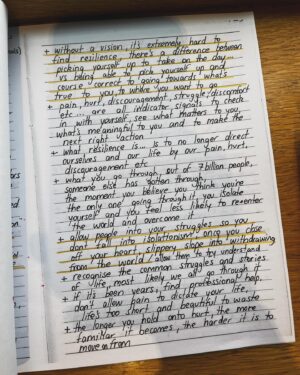 + without a vision, it's extremely hard to
find resilience, there's a difference between
picking yourself up to take on the day...
vs being able to pick yourself up and
course correct to going towards what's
true to you, to where you want to go
+ pain, hurt, discouragement, struggle, discomfort
etc... are all indicator signals to check
in with yourself, see what matters to you,
what's meaningful to you and to make the
next right action
+ what resilience is... is to no longer direct
ourselves and our life by our pain, hurt,
discouragement etc
+ what you go through, out of 7 billion people,
someone else has gotten through,
the moment you believe you think you're
the only one going through it, you isolate
yourself and you feel less likely to re-enter
the world and overcome it
+ allow people into your struggles so you
don't fall into isolationism, once you close
off your heart, slippery slope into withdrawing
from the world / allow them to try understand
+ recognise the common struggles and stories
of life, most likely we all go through it
+ if it's been years, find professional help,
don't allow pain to dictate your life,
life's too short and beautiful to waste
+ the longer you hold onto hurt, the more
familiar it becomes, the harder it is to
move on from